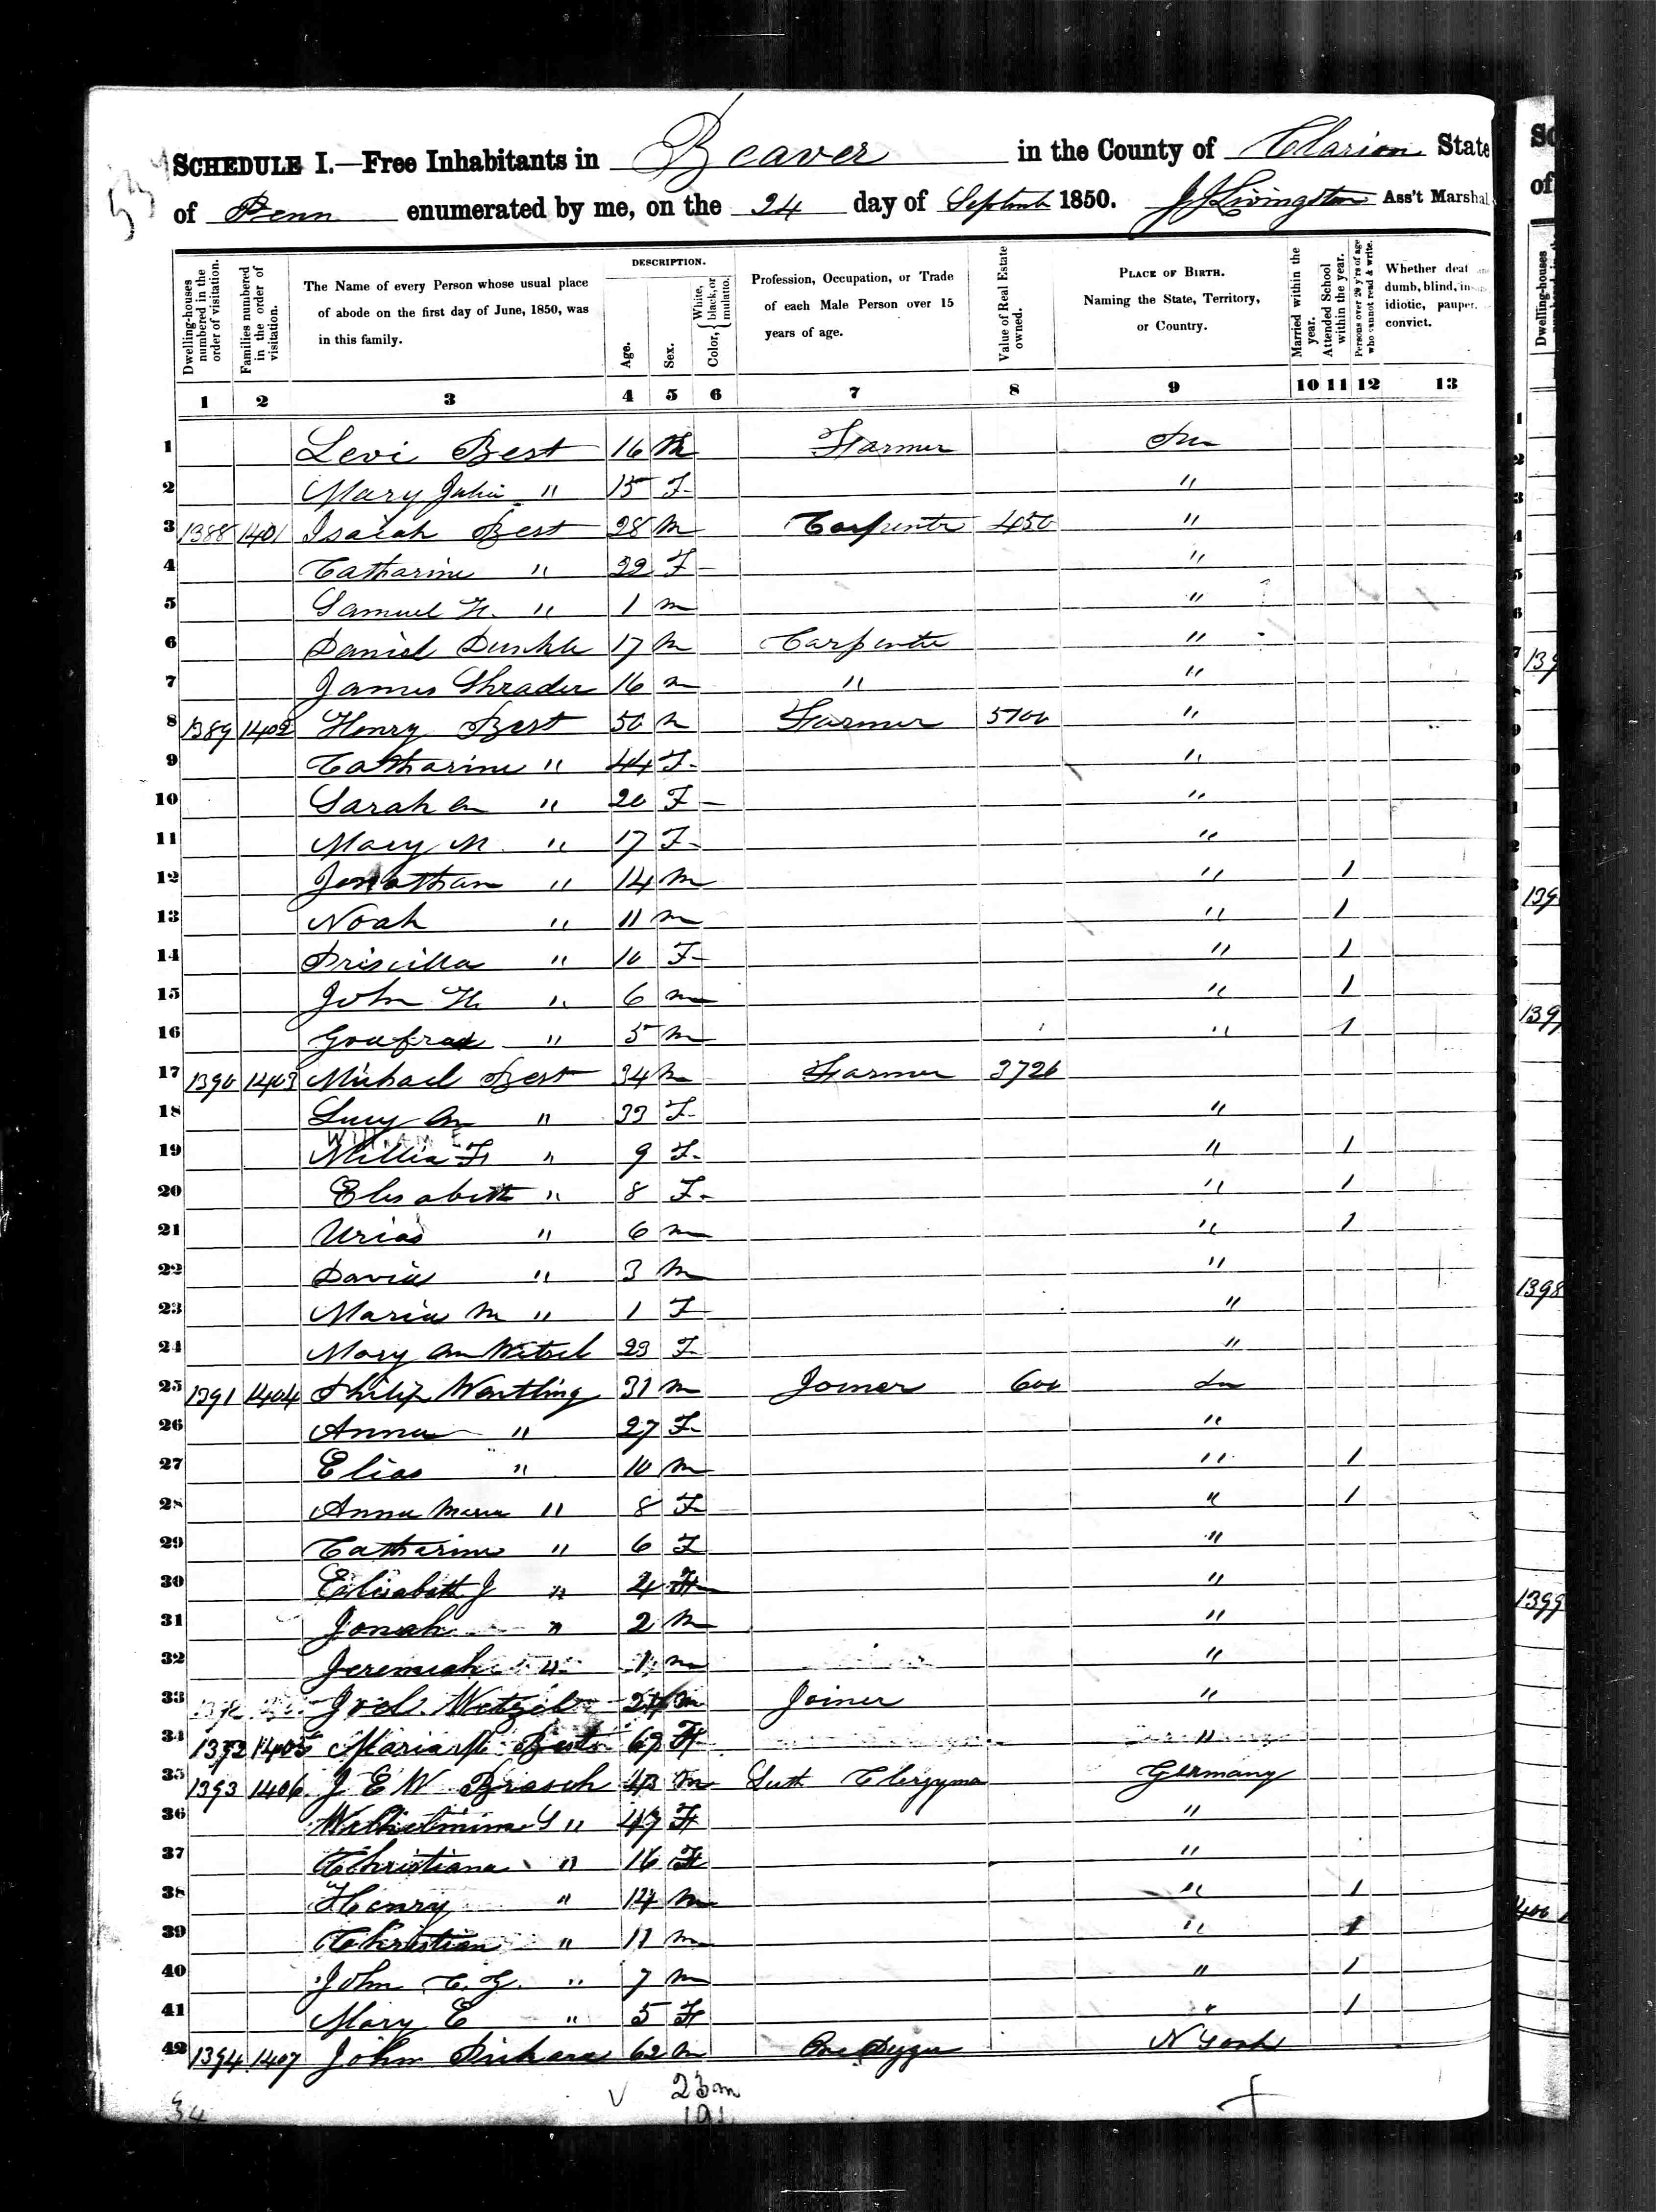 534
SCHEDULE I.—Free Inhabitants in Beaver in the County of Clarion State
of Penn enumerated by me, on the 24 day of Septemb 1850. J J Livingston Ass't Marshal
Dwelling-houses numbered in the order of visitation.
Families numbered in the order of visitation.
The Name of every Person whose usual place of abode on the first day of June, 1850, was in this family.
DESCRIPTION.
Age.
Sex.
Color, { White, black, or mulatto.
Profession, Occupation, or Trade of each Male Person over 15 years of age.
Value of Real Estate owned.
PLACE OF BIRTH. Naming the State, Territory, or Country.
Married within the year.
Attended School within the year.
Persons over 20 y'rs of age who cannot read & write.
Whether deaf and dumb, blind, insane, idiotic, pauper, convict.
1 2 3 4 5 6 7 8 9 10 11 12 13
1 Levi Best 16 M Farmer
2 Mary Julia " 15 F "
3 1388 1401 Isaiah Best 28 M Carpenter 450 "
4 Catharine " 22 F "
5 Samuel H. " 1 M "
6 Daniel Dunkle 17 M Carpenter "
7 James Shrader 16 M " "
8 1389 1402 Henry Best 50 M Farmer 5100 "
9 Catharine " 44 F "
10 Sarah An " 20 F "
11 Mary M. " 17 F "
12 Jonathan " 14 M " 1
13 Noah " 11 M " 1
14 Priscilla " 10 F " 1
15 John H " 6 M " 1
16 " 5 M " 1
17 1390 1403 Michael Best 34 M Farmer 3720
18 Lucy An " 33 F "
WILLIAM F
19 Millia F " 9 F " 1
20 Elisabeth " 8 F " 1
21 Urias " 6 M " 1
22 David " 3 M "
23 Maria M " 1 F "
24 Mary An Witzel 23 F "
25 1391 1404 Philip Wentling 31 M Joiner 600 do
26 Anna " 27 F "
27 Elias " 10 M " 1
28 Anna Maria " 8 F " 1
29 Catharine " 6 F "
30 Elisabeth J " 4 F "
31 Jonah " 2 M "
32 Jeremiah " 1 M "
33 Joel Wetzel 24 M Joiner "
34 1392 1405 Maria M Best 69 F "
35 1393 1406 J E W Brasch 43 M Luth Clergyman Germany
36 Wilhelmina G " 47 F "
37 Christiana " 16 F "
38 Henry " 14 M " 1
39 Christian " 11 M " 1
40 John C. G. " 7 M " 1
41 Mary E " 5 F " 1
42 1394 1407 John 62 M Ore Digger N York
23 m
34